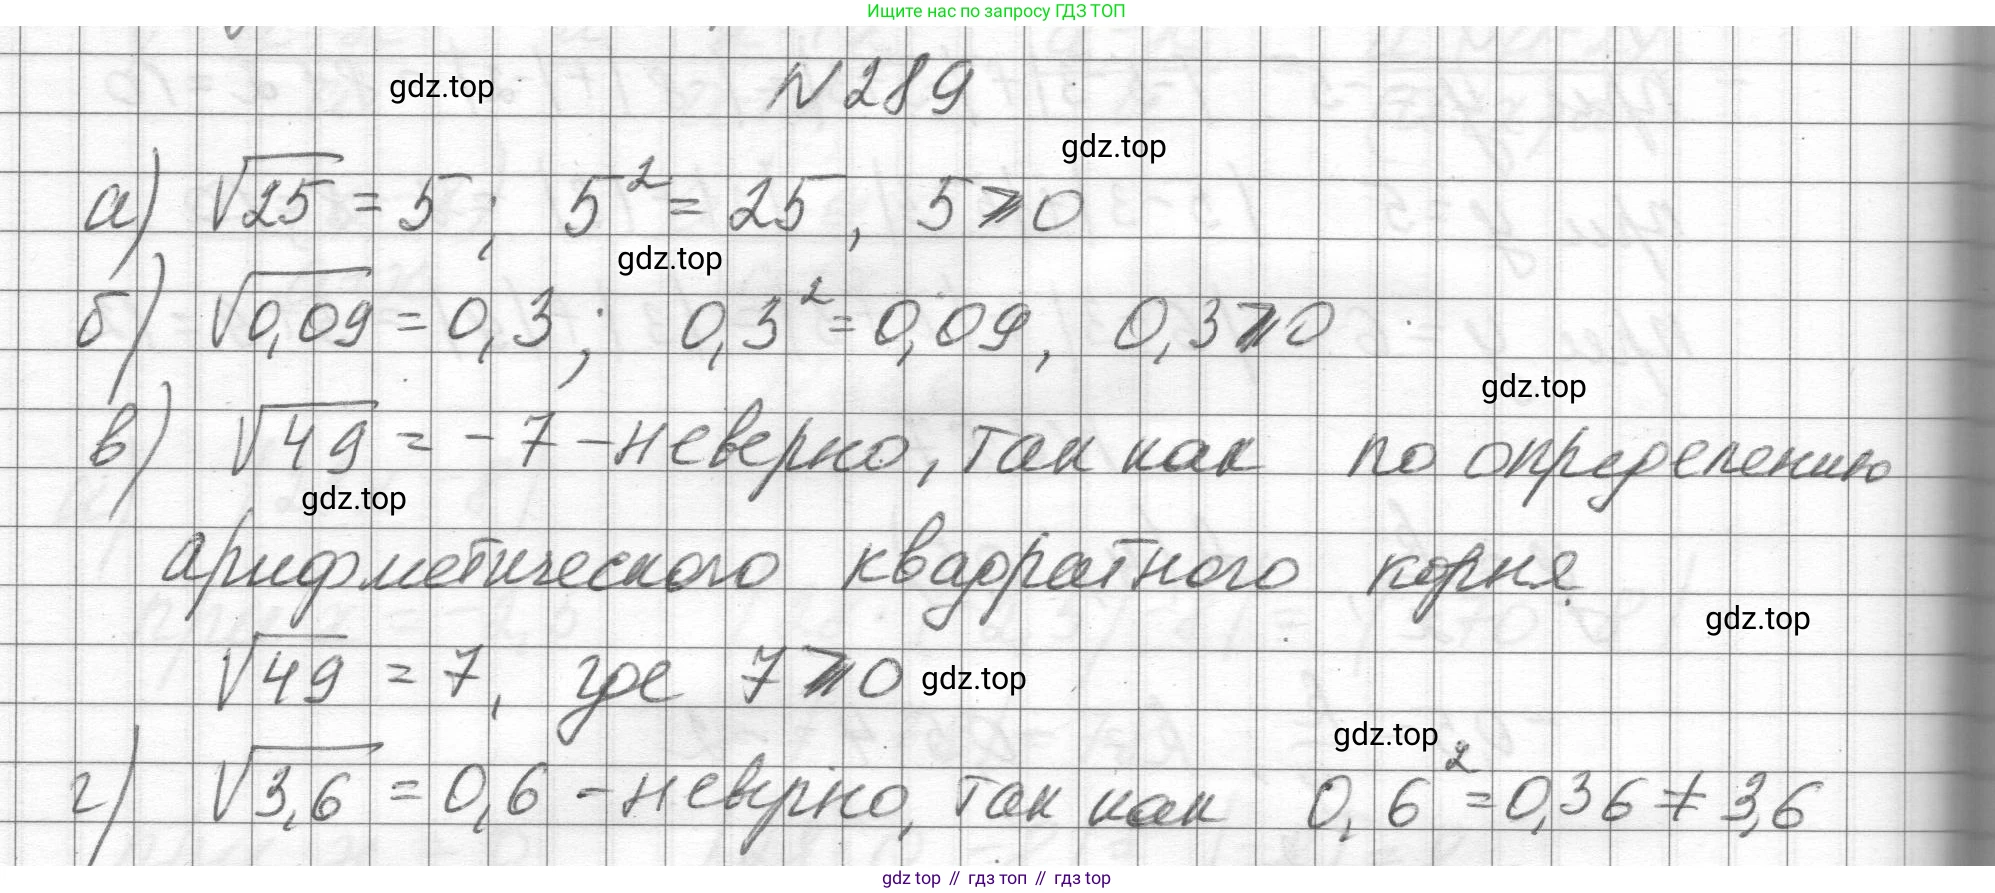 Ищите нас по запросу ГДЗ ТОП
gdz.top N 289
gdz.top
а) √25 = 5; 5² = 25, 5 ⩾ 0
gdz.top
б) √0,09 = 0,3; 0,3² = 0,09, 0,3 ⩾ 0
gdz.top
в) √49 = -7 - неверно, так как по определению
gdz.top
арифметического квадратного корня
gdz.top
√49 = 7, где 7 ⩾ 0 gdz.top
gdz.top
г) √3,6 = 0,6 - неверно, так как 0,6² = 0,36 ≠ 3,6
gdz top // гдз топ // гдз top